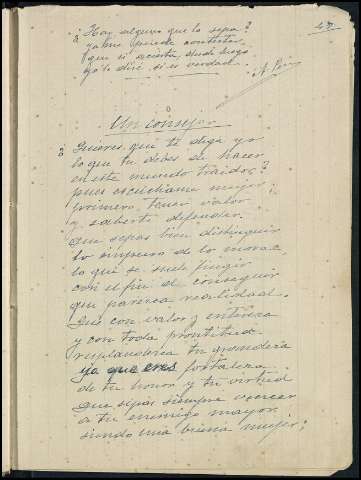 47.
¿Hay alguno que lo sepa?
ya me puede contestar
que si acierta, desde luego
yo le diré si es verdad.
Un consejo
¿Quieres que te diga yo
lo que tu debes de hacer
en este mundo traidor?
pues escúchame mujer;
primero, tener valor
y saberte defender.
Que sepas bien distinguir
lo de lo moral,
lo que se suele fingir
con el fin de conseguir
que parezca realidad.
Que con valor y entereza
y con toda prontitud
resplandezca tu grandeza
ya que eres fortaleza
de tu honor y tu virtud
Que sepas siempre vencer
a tu enemigo mayor
siendo una buena mujer;